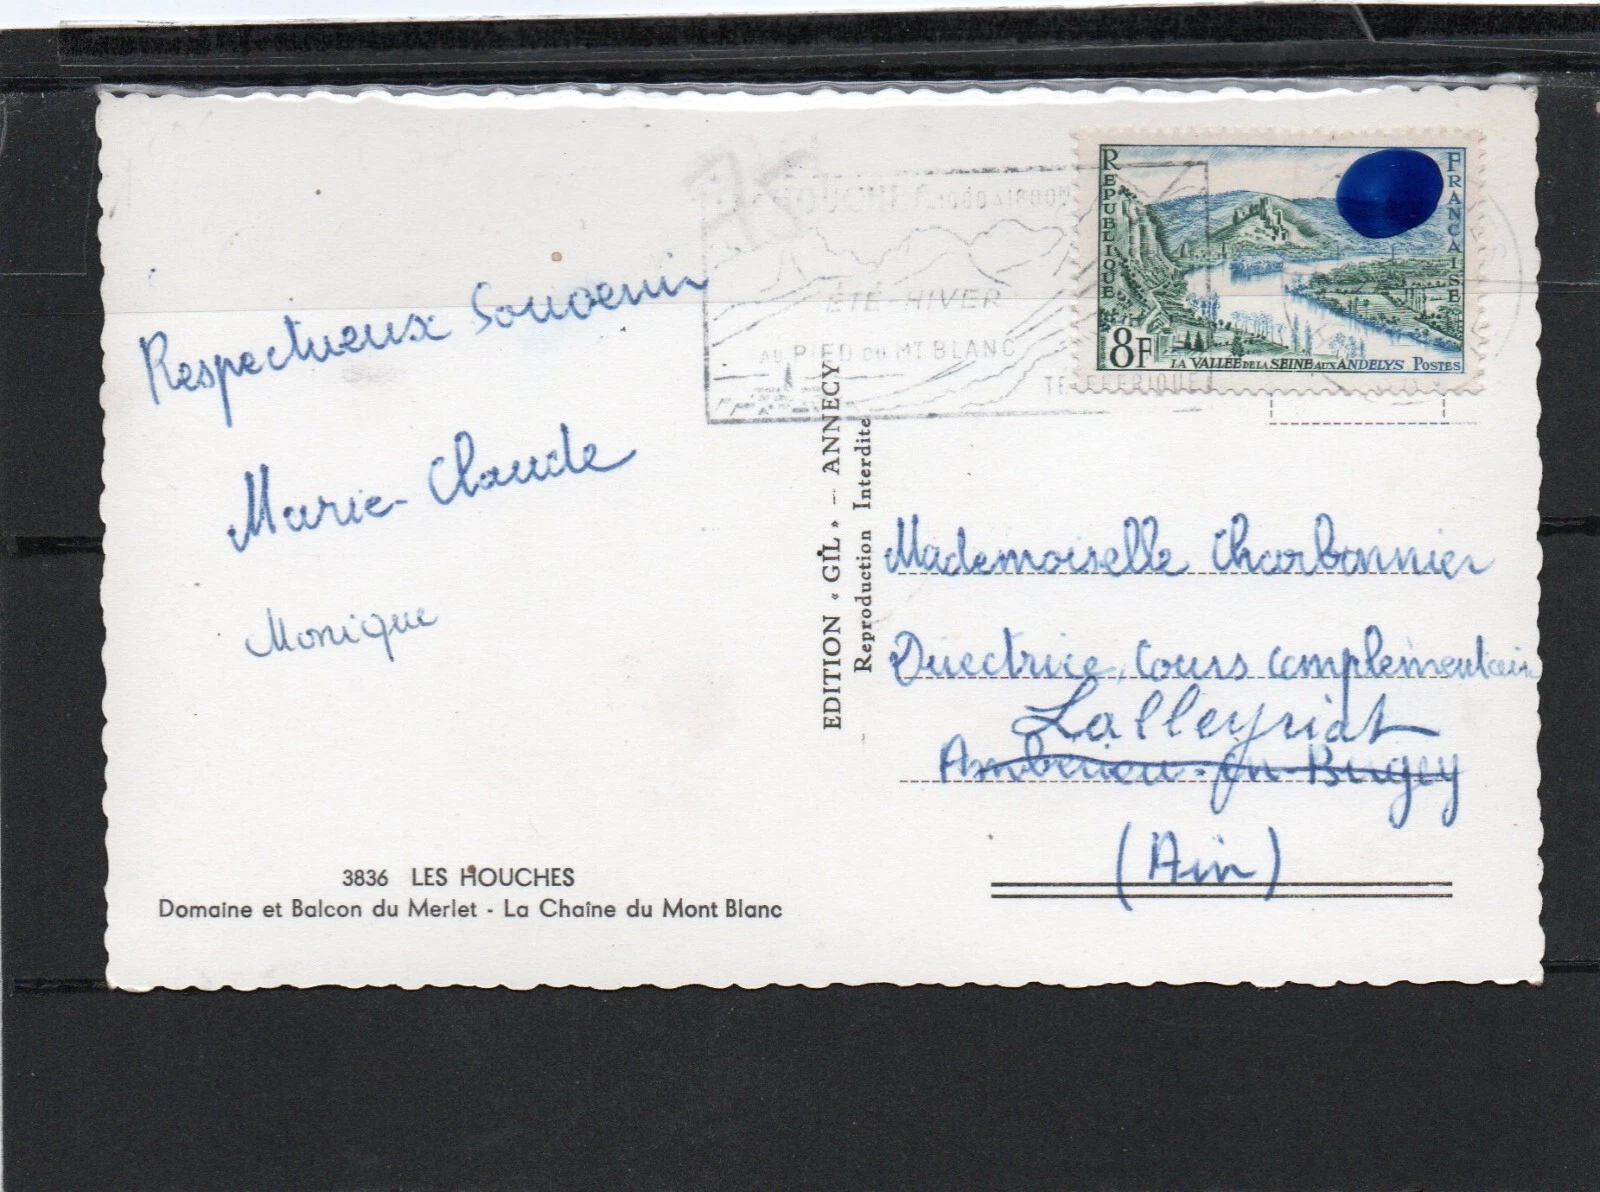 Respectueux Souvenir
Marie-Claude
Monique
3836 LES HOUCHES
Domaine et Balcon du Merlet - La Chaîne du Mont Blanc
EDITION « GIL » - ANNECY
Reproduction Interdite
1000 A 1800M
ÉTÉ-HIVER
AU PIED DU MT BLANC
TELEFERIQUE
RÉPUBLIQUE
FRANÇAISE
8F
LA VALLÉE DE LA SEINE AUX ANDELYS POSTES
Mademoiselle Charbonnier
Directrice, Cours complémentaire
Lalleyriat
Ambérieu-en-Bugey
(Ain)